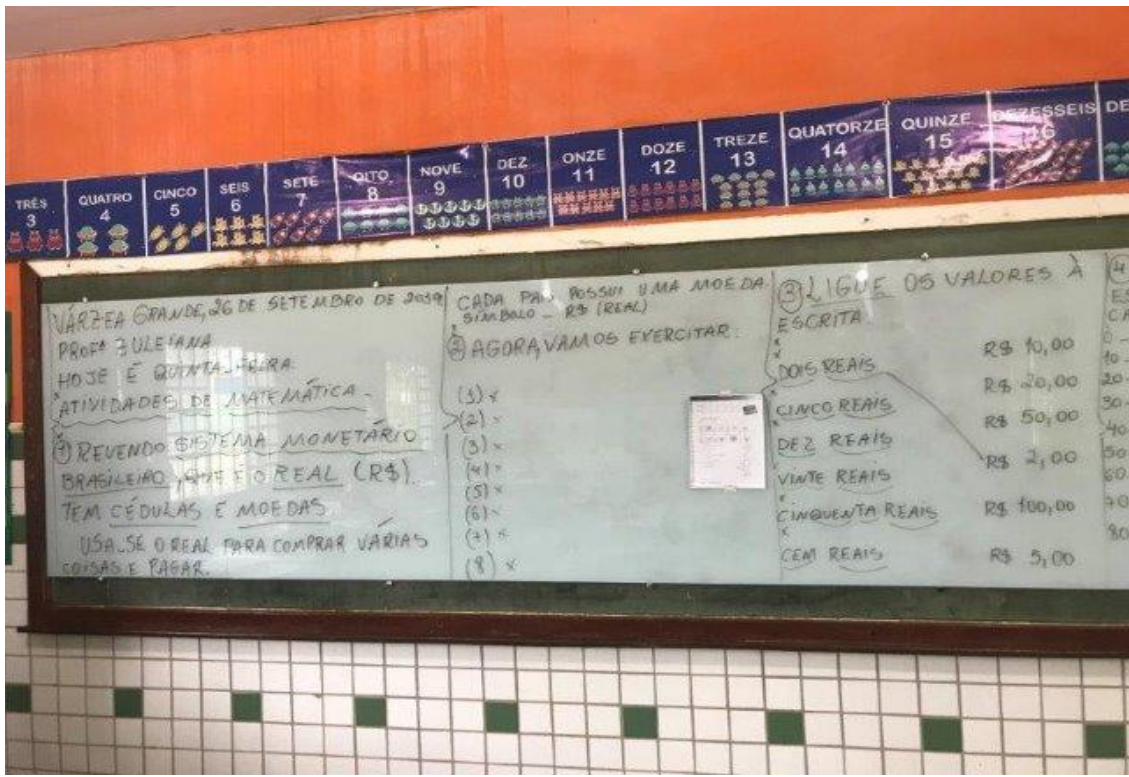 TRÊS
3
QUATRO
4
CINCO
5
SEIS
6
SETE
7
OITO
8
NOVE
9
DEZ
10
ONZE
11
DOZE
12
TREZE
13
QUATORZE
14
QUINZE
15
DEZESSEIS
16
DE
VÁRZEA GRANDE, 26 DE SETEMBRO DE 2019
PROFª ZULEIANA
HOJE É QUINTA-FEIRA.
ATIVIDADES DE MATEMÁTICA
① REVENDO SISTEMA MONETÁRIO
BRASILEIRO, QUE É O REAL (R$).
TEM CÉDULAS E MOEDAS
USA-SE O REAL PARA COMPRAR VÁRIAS
COISAS E PAGAR.
CADA PAÍS POSSUI UMA MOEDA.
SÍMBOLO - R$ (REAL)
② AGORA, VAMOS EXERCITAR:
(1) x
(2) x
(3) x
(4) x
(5) x
(6) x
(7) x
(8) x
③ LIGUE OS VALORES À
ESCRITA.
DOIS REAIS R$ 10,00
CINCO REAIS R$ 20,00
DEZ REAIS R$ 50,00
VINTE REAIS R$ 2,00
CINQUENTA REAIS R$ 100,00
CEM REAIS R$ 5,00
④
ES
CA
0 -
10 -
20 -
30 -
40
50
60
70
80